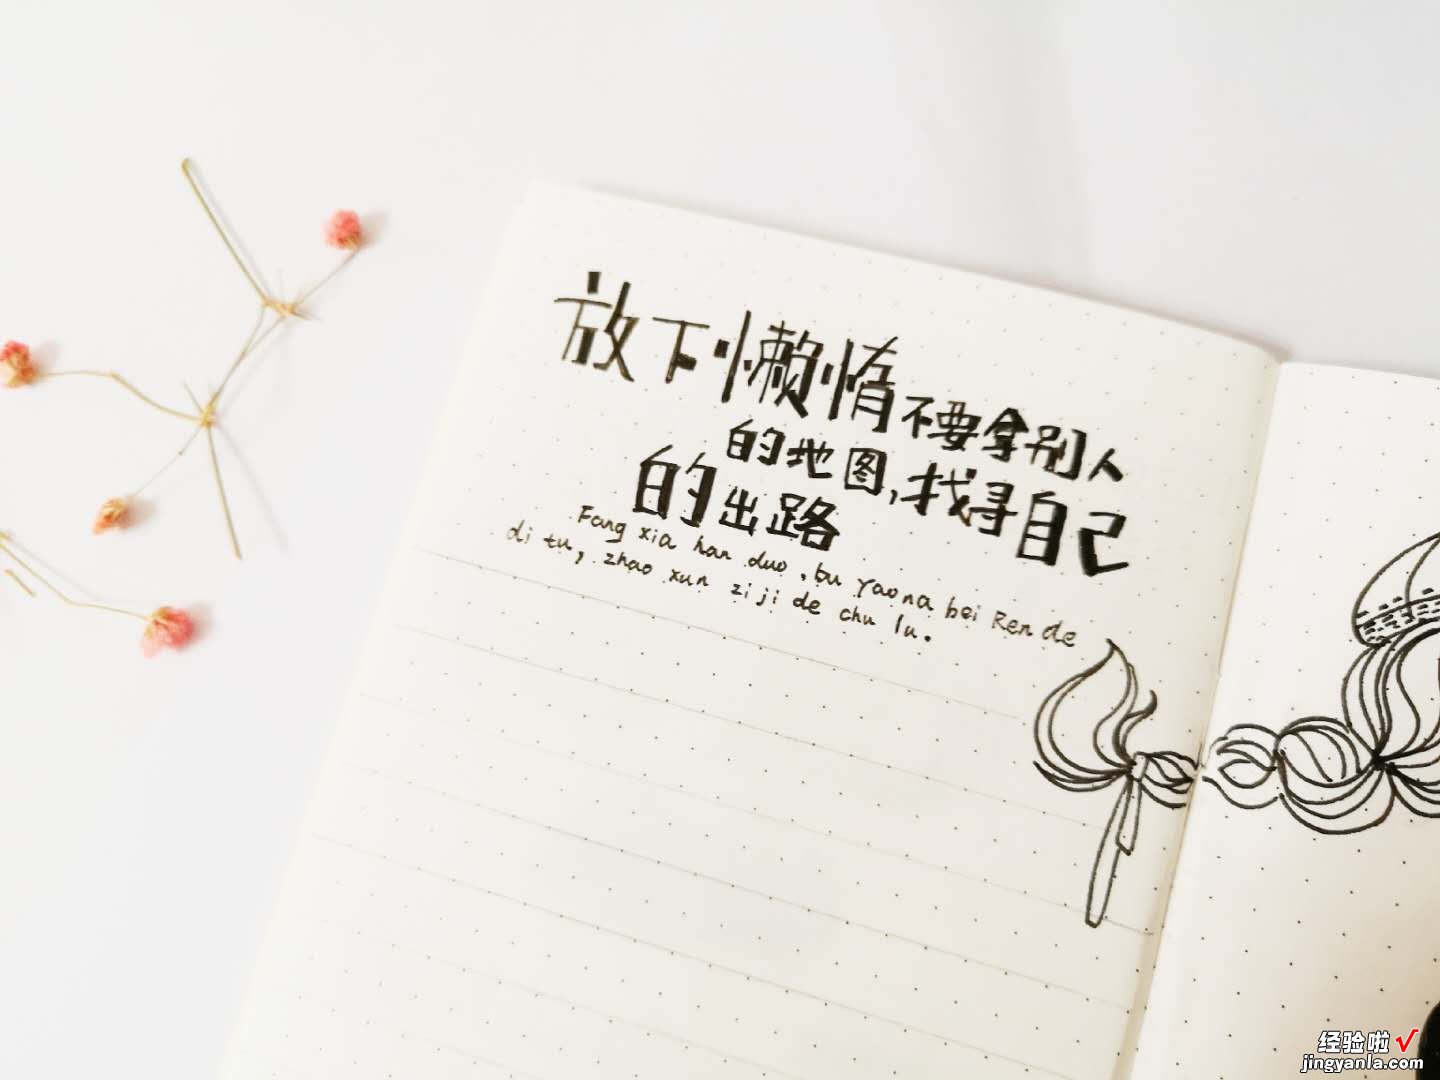 放下懒惰不要拿别人
的地图,找寻自己
的出路
Fang xia han duo, bu Yao na bei Ren de
di tu, zhao xun zi ji de chu lu.
经验啦√
jingyanla.com